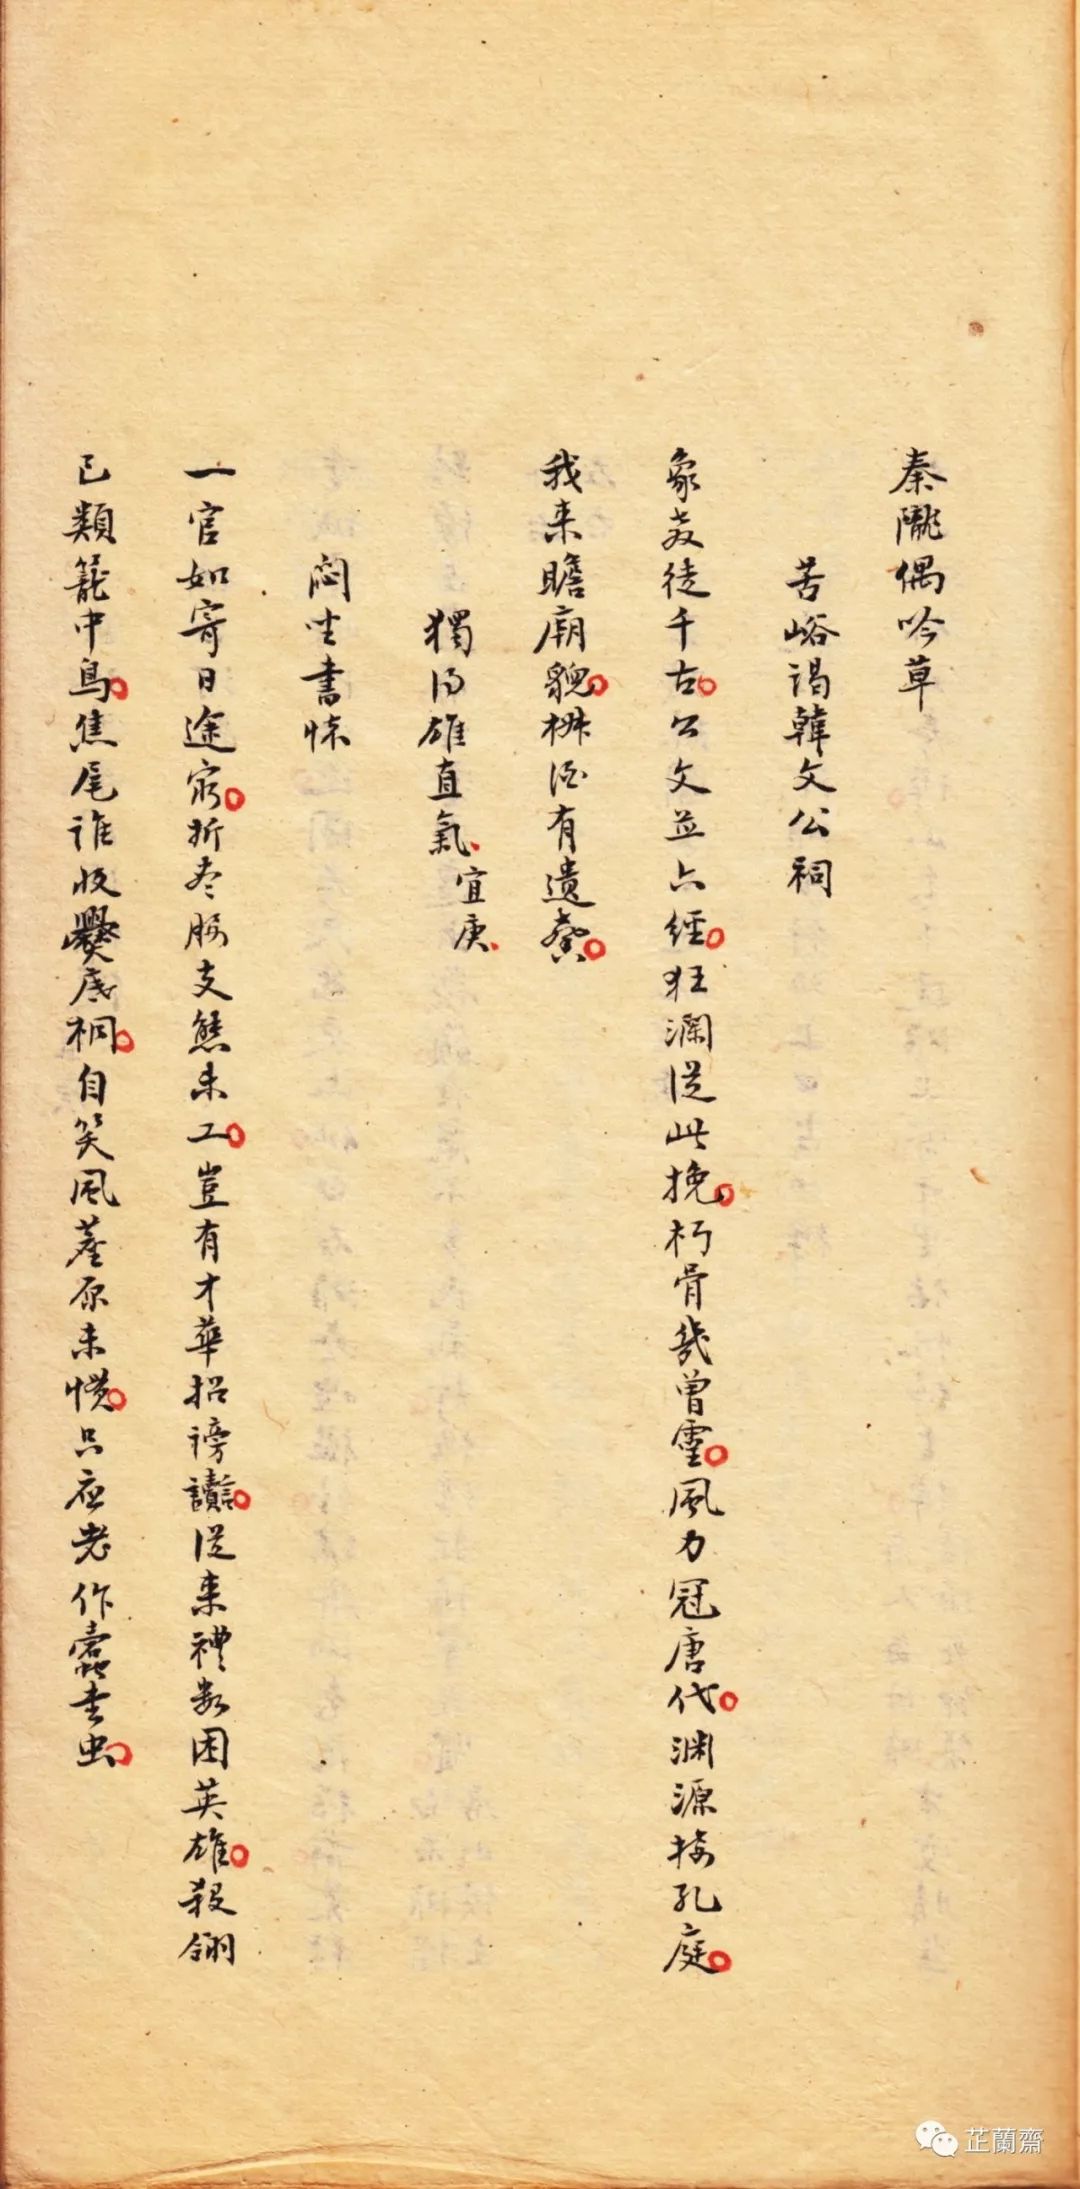 秦隴偶吟草
苦峪謁韓文公祠
象教徒千古公文並六經狂瀾從此挽朽骨幾曾靈風力冠唐代淵源接孔庭
我來瞻廟貌椒酒有遺馨
獨得雄直氣宜庚
悶坐書懷
一官如寄日途窮折盡腰支態未工豈有才華招謗讟從來禮數困英雄鎩翎
已類籠中鳥焦尾誰收爨底桐自笑風塵原未慣只應老作蠹書虫
芷蘭齋